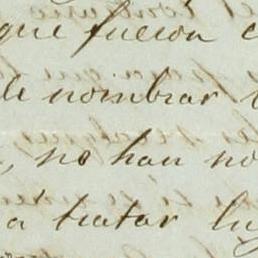 que fueron
de nombrar
, no han no
a tratar